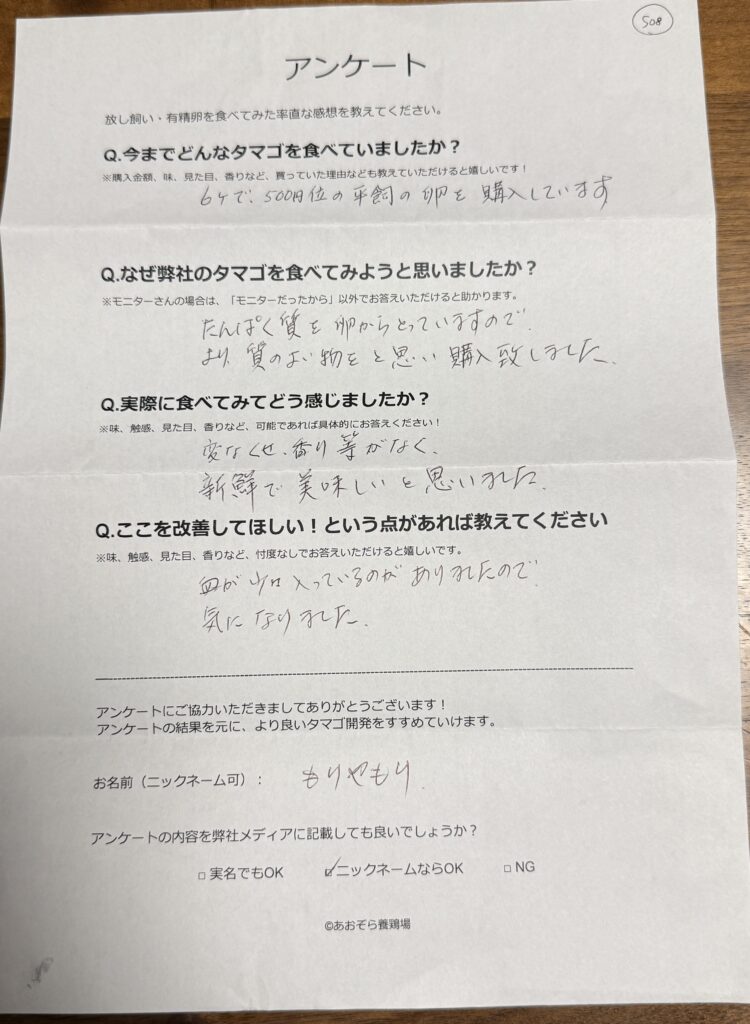 508
アンケート
放し飼い・有精卵を食べてみた率直な感想を教えてください。
Q.今までどんなタマゴを食べていましたか？
※購入金額、味、見た目、香りなど、買っていた理由なども教えていただけると嬉しいです！
6ケで、500円位の平飼の卵を購入しています
Q.なぜ弊社のタマゴを食べてみようと思いましたか？
※モニターさんの場合は、「モニターだったから」以外でお答えいただけると助かります。
たんぱく質を卵からとっていますので、
より、質のよい物をと思い購入致しました。
Q.実際に食べてみてどう感じましたか？
※味、触感、見た目、香りなど、可能であれば具体的にお答えください！
変なくせ、香り等がなく、
新鮮で美味しいと思いました。
Q.ここを改善してほしい！という点があれば教えてください
※味、触感、見た目、香りなど、忖度なしでお答えいただけると嬉しいです。
血が少々入っているのがありましたので、
気になりました。
アンケートにご協力いただきましてありがとうございます！
アンケートの結果を元に、より良いタマゴ開発をすすめていけます。
お名前（ニックネーム可）： もりやもり.
アンケートの内容を弊社メディアに記載しても良いでしょうか？
□ 実名でもOK ☑ニックネームならOK □ NG
©あおぞら養鶏場